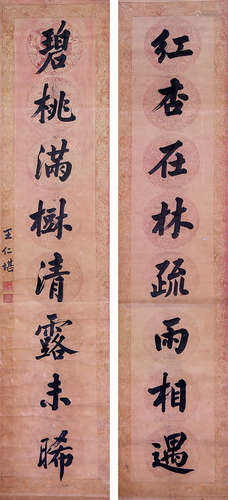 红杏在林疏雨相遇
碧桃满树清露未晞
王仁堪